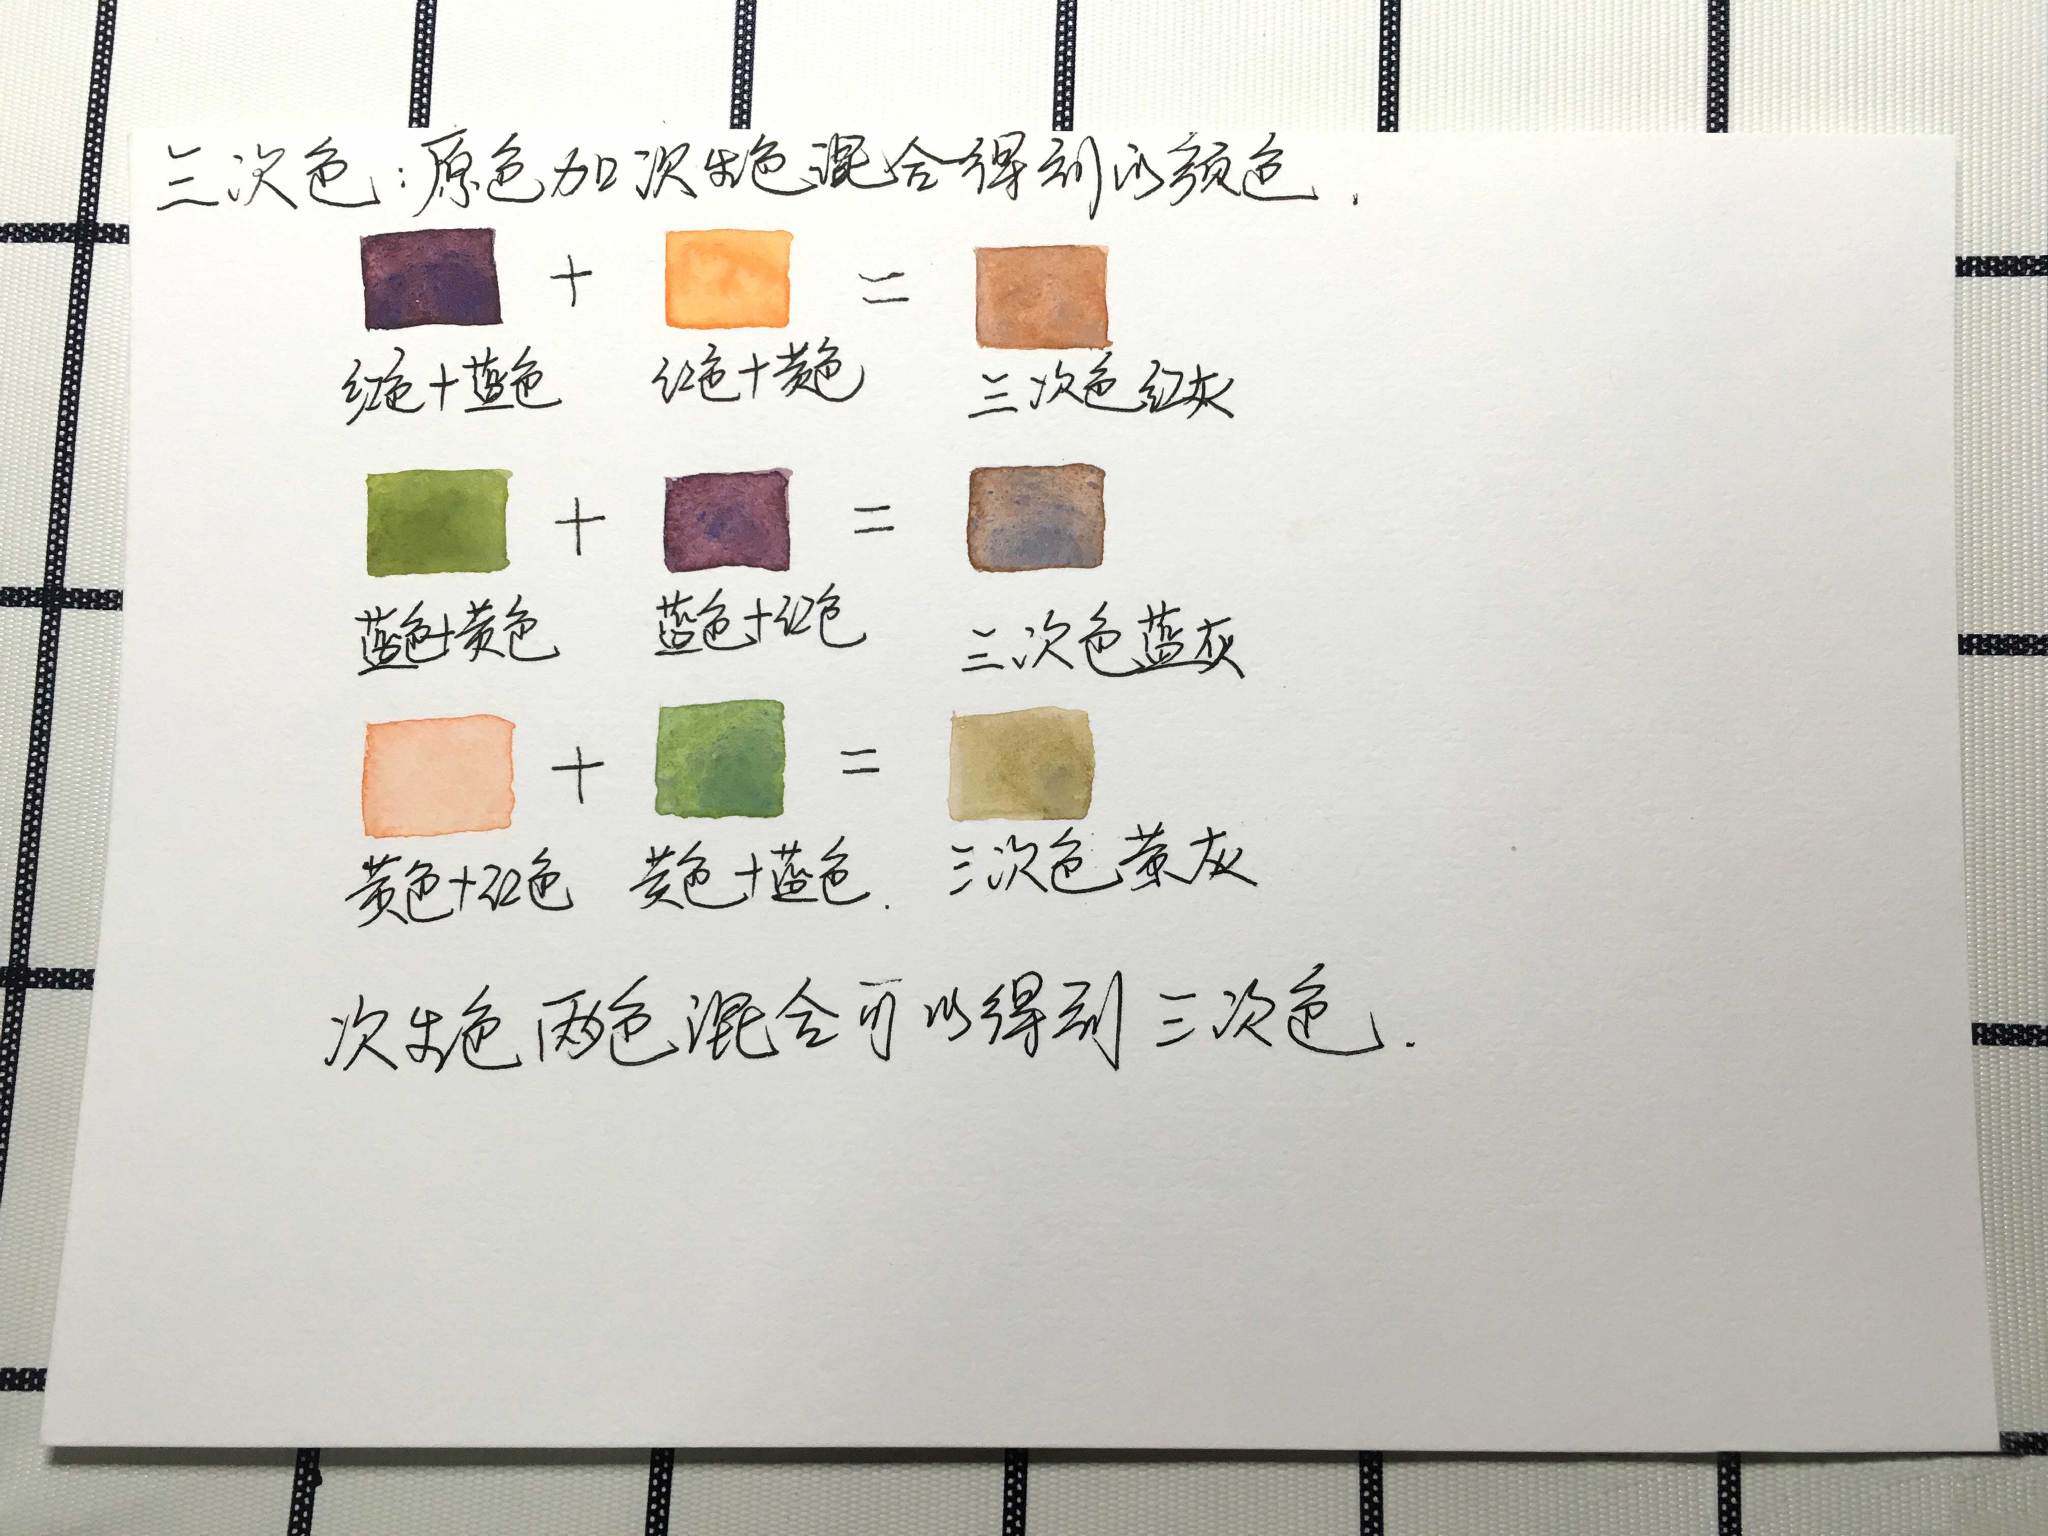 三次色:原色加次生色混合得到的颜色.
+ =
红色+蓝色 红色+黄色 三次色红灰
+ =
蓝色+黄色 蓝色+红色 三次色蓝灰
+ =
黄色+红色 黄色+蓝色. 三次色黄灰
次生色两色混合可以得到三次色.